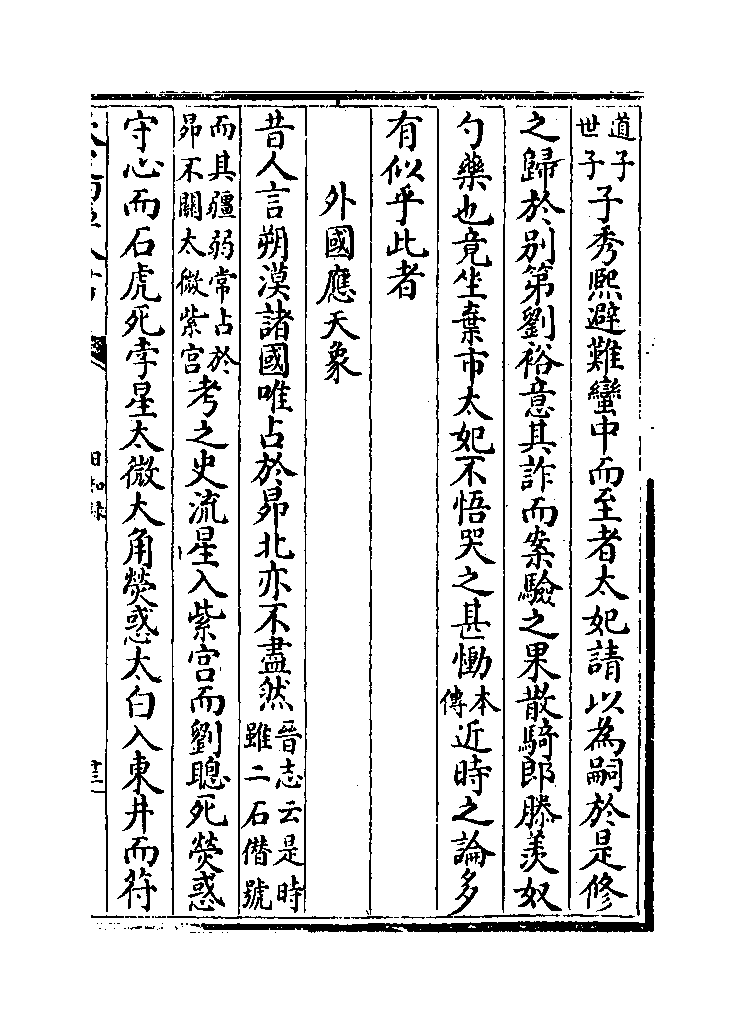 道子世子子秀熙避難蠻中而至者太妃請以為嗣於是修
之歸於别第劉裕意其詐而案驗之果散騎郎滕羨奴
勺藥也竟坐棄市太妃不悟哭之甚慟本傳近時之論多
有似乎此者
外國應天象
昔人言朔漠諸國唯占於昴北亦不盡然晉志云是時雖二石僭號
而其疆弱常占於昴不關太微紫宫考之史流星入紫宫而劉聰死熒惑
守心而石虎死孛星太微大角熒惑太白入東井而符
日知録